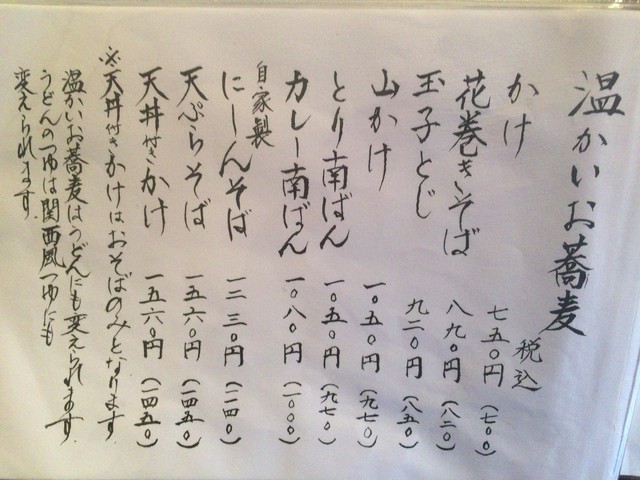 温かいお蕎麦
税込
かけ 七五〇円(七〇〇)
花巻きそば 八九〇円(八二〇)
玉子とじ 九二〇円(八五〇)
山かけ 一、〇五〇円(九七〇)
とり南ばん 一、〇五〇円(九七〇)
カレー南ばん 一、〇八〇円(一、〇〇〇)
自家製
にしんそば 一二三〇円(一一四〇)
天ぷらそば 一五六〇円(一四五〇)
天丼付きかけ 一五六〇円(一四五〇)
※天丼付きかけはおそばのみとなります
温かいお蕎麦はうどんにも変えられます
うどんのつゆは関西風つゆにも
変えられます。